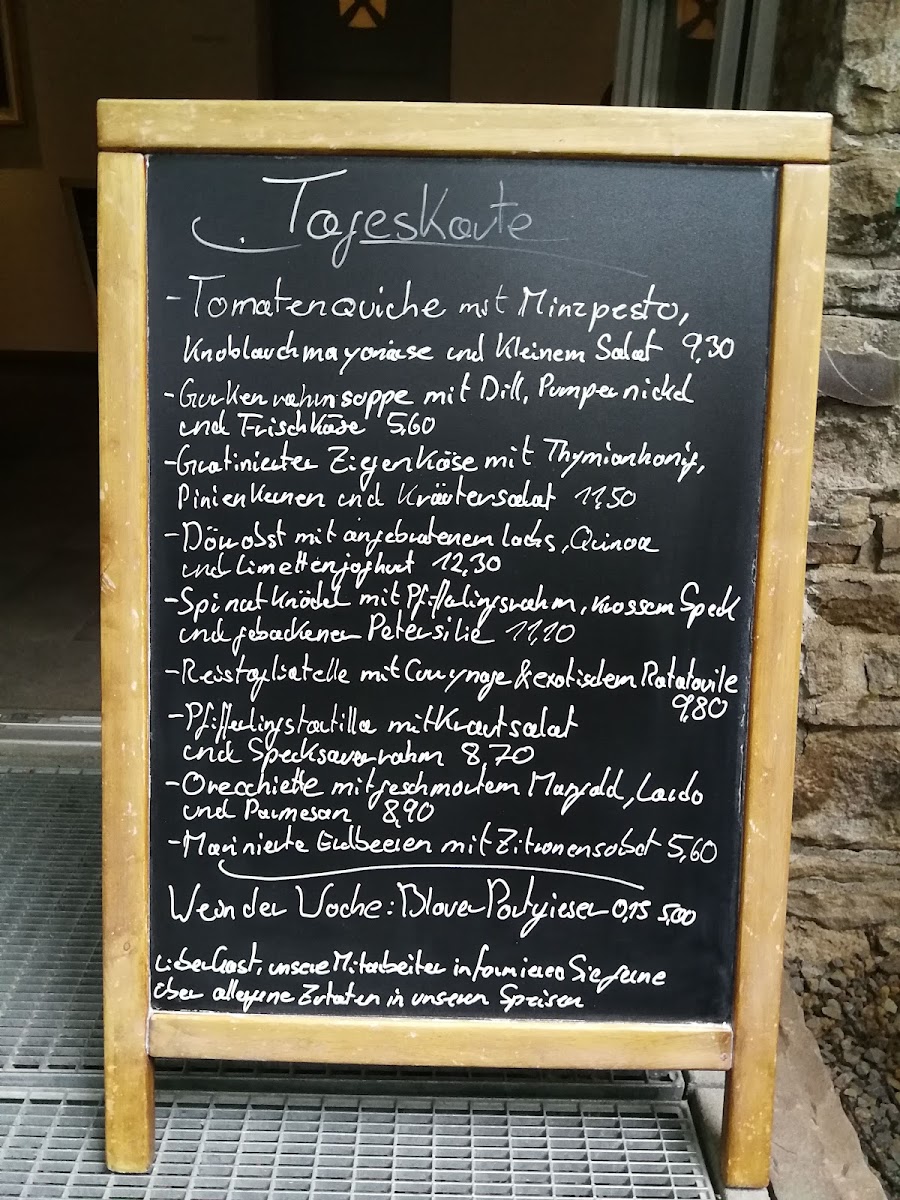 Tageskarte
- Tomatenquiche mit Minzpesto,
Knoblauchmayonaise und kleinem Salat 9,30
- Gurkenrahmsuppe mit Dill, Pumpernickel
und Frischkäse 5,60
- Gratinierter Ziegenkäse mit Thymianhonig,
Pinienkernen und Kräutersalat 11,50
- Dörrobst mit angebratenem Lachs, Quinoa
und Limettenjoghurt 12,30
- Spinatknödel mit Pfifferlingsrahm, krossem Speck
und gebackener Petersilie 11,10
- Reistagliatelle mit & exotischem Ratatouile
9,80
- Pfifferlingstortilla mit Krautsalat
und Specksauerrahm 8,70
- Orecchiette mit geschmortem Mangold, Lardo
und Parmesan 8,90
- Marinierte Erdbeeren mit Zitronensorbet 5,60
Wein der Woche: Blauer Portugieser 0,15 5,00
Lieber Gast, unsere Mitarbeiter informieren Sie gerne
über allergene Zutaten in unseren Speisen